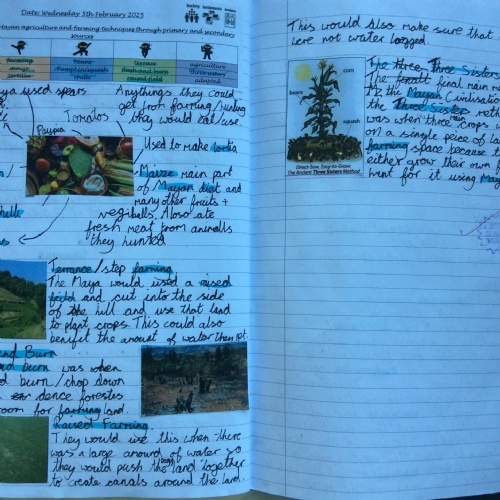 Date: Wednesday 5th February 2025
Society
ayan agriculture and farming techniques through primary and secondary
sources
farming
maize
tortillas
beans
pumpkin/squash
terrace
slash and burn
raised field
agriculture
three sisters
adapted
aya used spears
Anything they could
get from farring/hunting
they would eat/use.
Tomatos
Papyia
Used to make
Maize main part
of Mayan diet and
many other fruits +
vegiballs. Aloso ate
fresh meat from animalls
they hunted
Terrance/step farming
The Maya would used a raised
feild and cut into the side
of the hill and use that land
to plant crops. This could also
benifit the amount of water them get.
and Burn
and burn was when
d burn/chop down
dence forestes
room for farming land.
Raised Farming
They would use this when there
was a large amound of water so
they would push the land together
to create canals around the land.
This would also make sure that
were not water logged.
beans
corn
squash
Direct-Sow, Easy-to-Grow
The Ancient Three Sisters Method
The Three Sister
The final main
the Mayan civilisati
the Three Sisters
was when three crops
on a single peice of la
farming space because
either grow their own
hunt for it using May